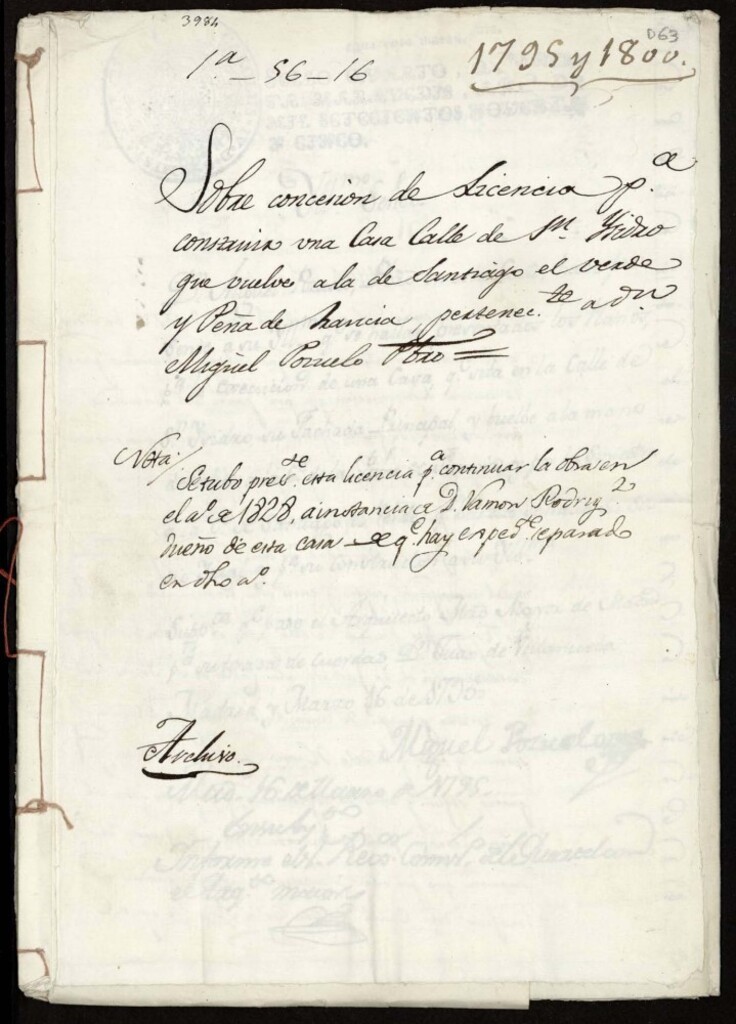 3984
D63
1.ª - 56 - 16
1795 y 1800.
Sobre concesion de Licencia p.ª
construir una Casa Calle de S.n Ysidro
que vuelve a la de Santiago el verde
y Peña de francia pertenec.te a d.n
Miguel Pozuelo Pbro =
Nota /
Se tubo pres.te esta licencia p.ª continuar la obra en
el a.º de 1828, a instancia de D. Ramon Rodrig.z
dueño de esta casa de q.e hay exped.te separado
en dho a.º
Archivo.
Miguel Pozuelo